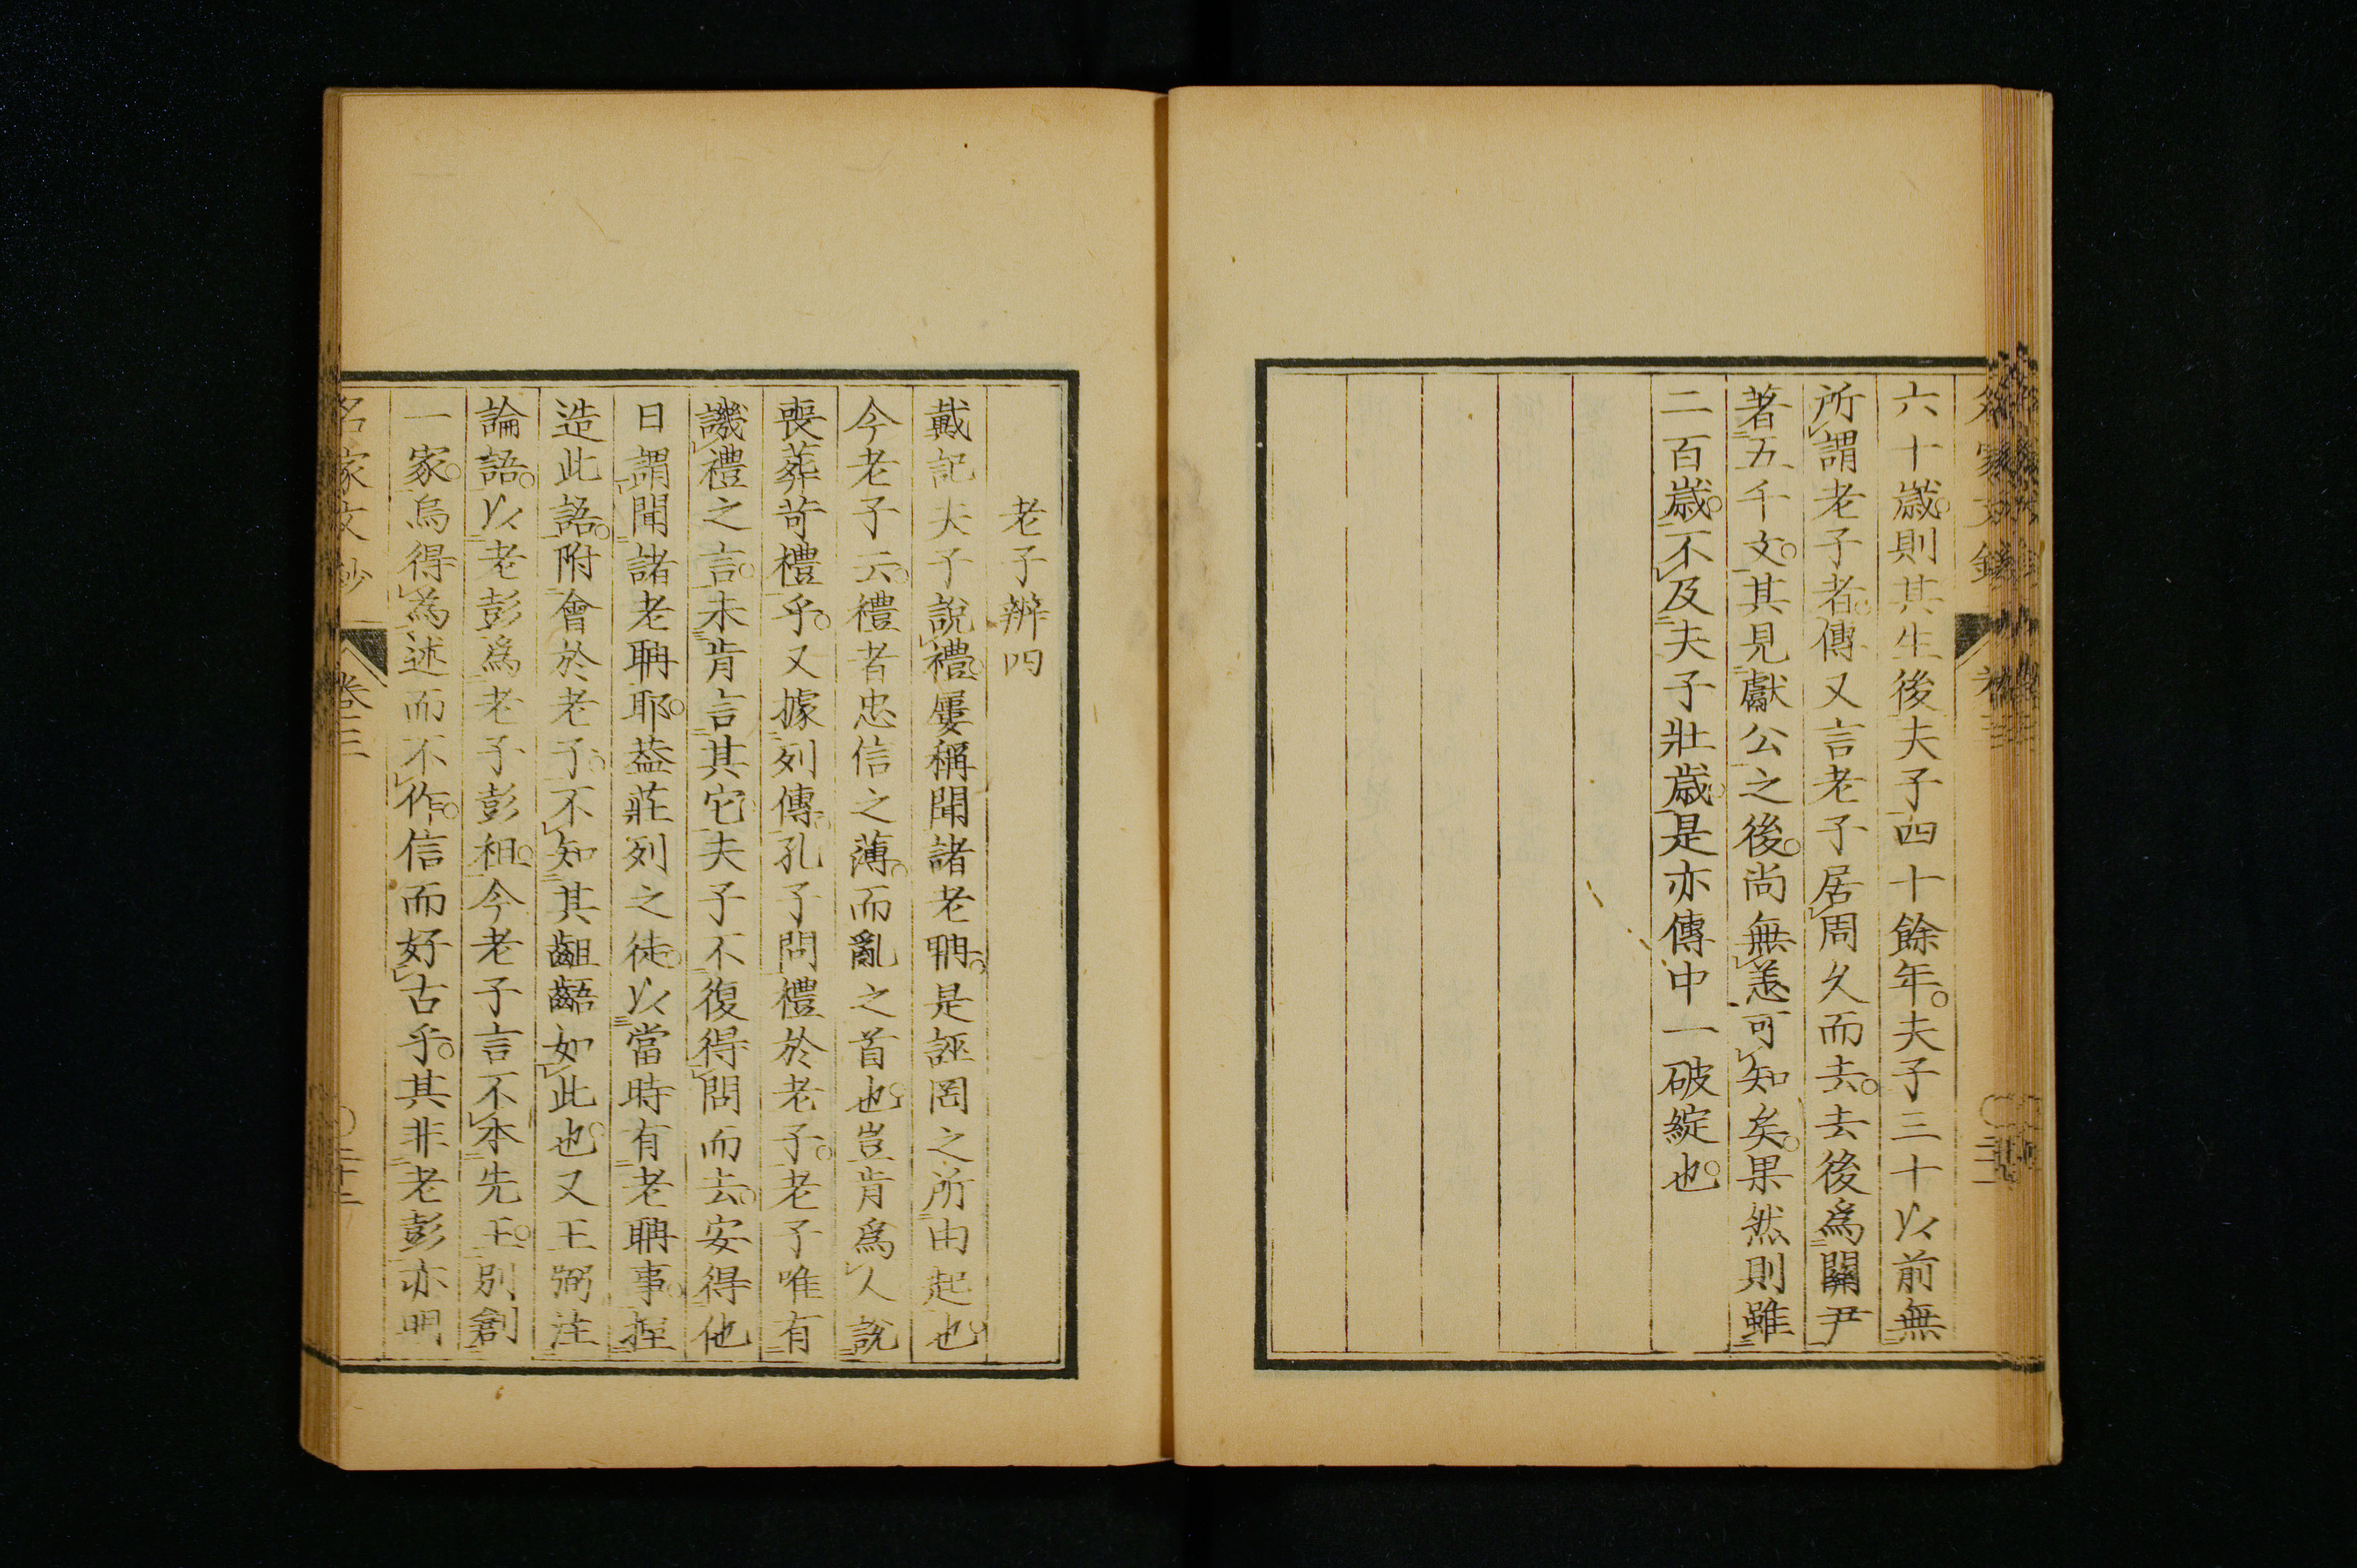 六十歲則其生後夫子四十餘年。夫子三十以前無
所謂老子者。傳又言老子居周久而去。去後爲關尹
著五千文。其見獻公之後。尚無恙可知矣。果然則雖
二百歲。不及夫子壯歲。是亦傳中一破綻也。
老子辨四
戴記夫子說禮。屢稱聞諸老聃。是誣罔之所由起也。
今老子云。禮者忠信之薄。而亂之首也。豈肯爲人說
喪葬苛禮乎。又據列傳。孔子問禮於老子。老子唯有
譏禮之言。未肯言其它。夫子不復得問而去。安得他
日謂聞諸老聃耶。葢莊列之徒。以當時有老聃事。揑
造此語。附會於老子。不知其齟齬如此也。又王弼注
論語。以老彭爲老子彭祖。今老子言不本先王。別創
一家。烏得為述而不作。信而好古乎。其非老彭亦明
名家文鈔 卷三